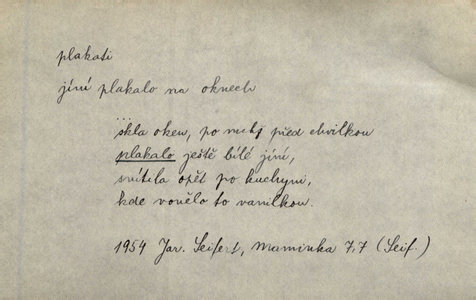 plakati
jíní plakalo na oknech
...skla oken, po nichž před chvilkou
plakalo ještě bílé jíní,
svítila opět po kuchyni,
kde vonělo to vanilkou.
1954 Jar. Seifert, Maminka 7,7 (Seif.)